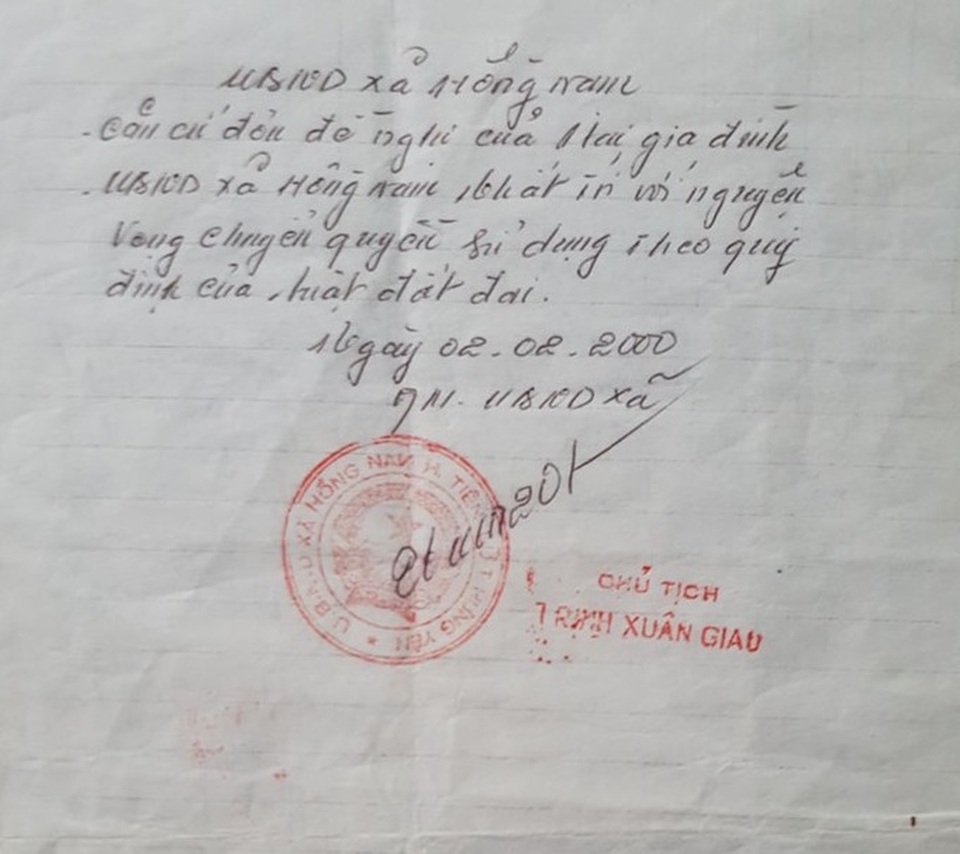 UBND xã Hồng Nam
- Căn cứ đơn đề nghị của Hai gia đình
- UBND xã Hồng Nam, Nhất trí với nguyện
Vọng chuyển quyền sử dụng Theo quy
định của, luật đất đai.
Ngày 02.02.2000
TM. UBND xã
U.B.N.D XÃ HỒNG NAM H. TIÊN
T. HƯNG YÊN
CHỦ TỊCH
TRỊNH XUÂN GIAO